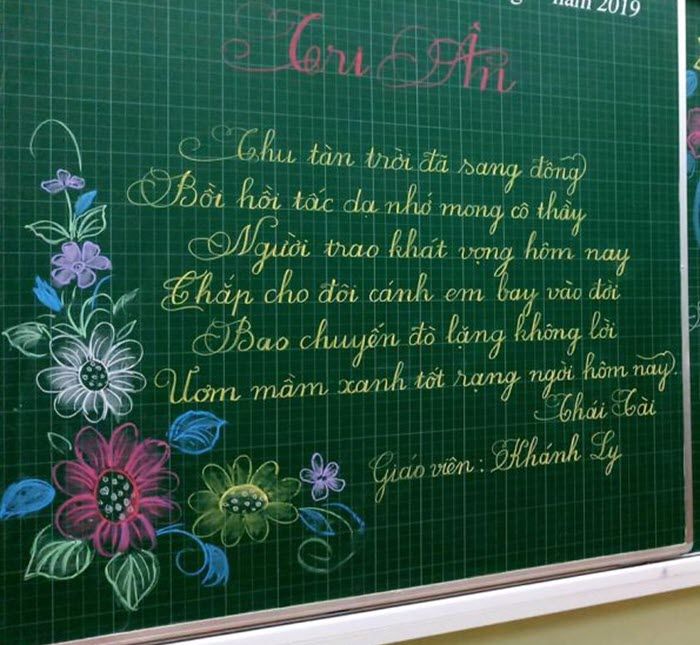 năm 2019
Tri Ân
Thu tàn trời đã sang đông
Bồi hồi tấc dạ nhớ mong cô thầy
Người trao khát vọng hôm nay
Chắp cho đôi cánh em bay vào đời
Bao chuyến đò lặng không lời
Ươm mầm xanh tốt rạng ngời hôm nay.
Thái Tài
Giáo viên: Khánh Ly